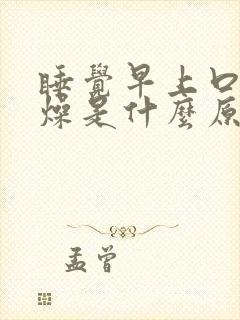 睡覺早上口
燥是什麼原
孟曾